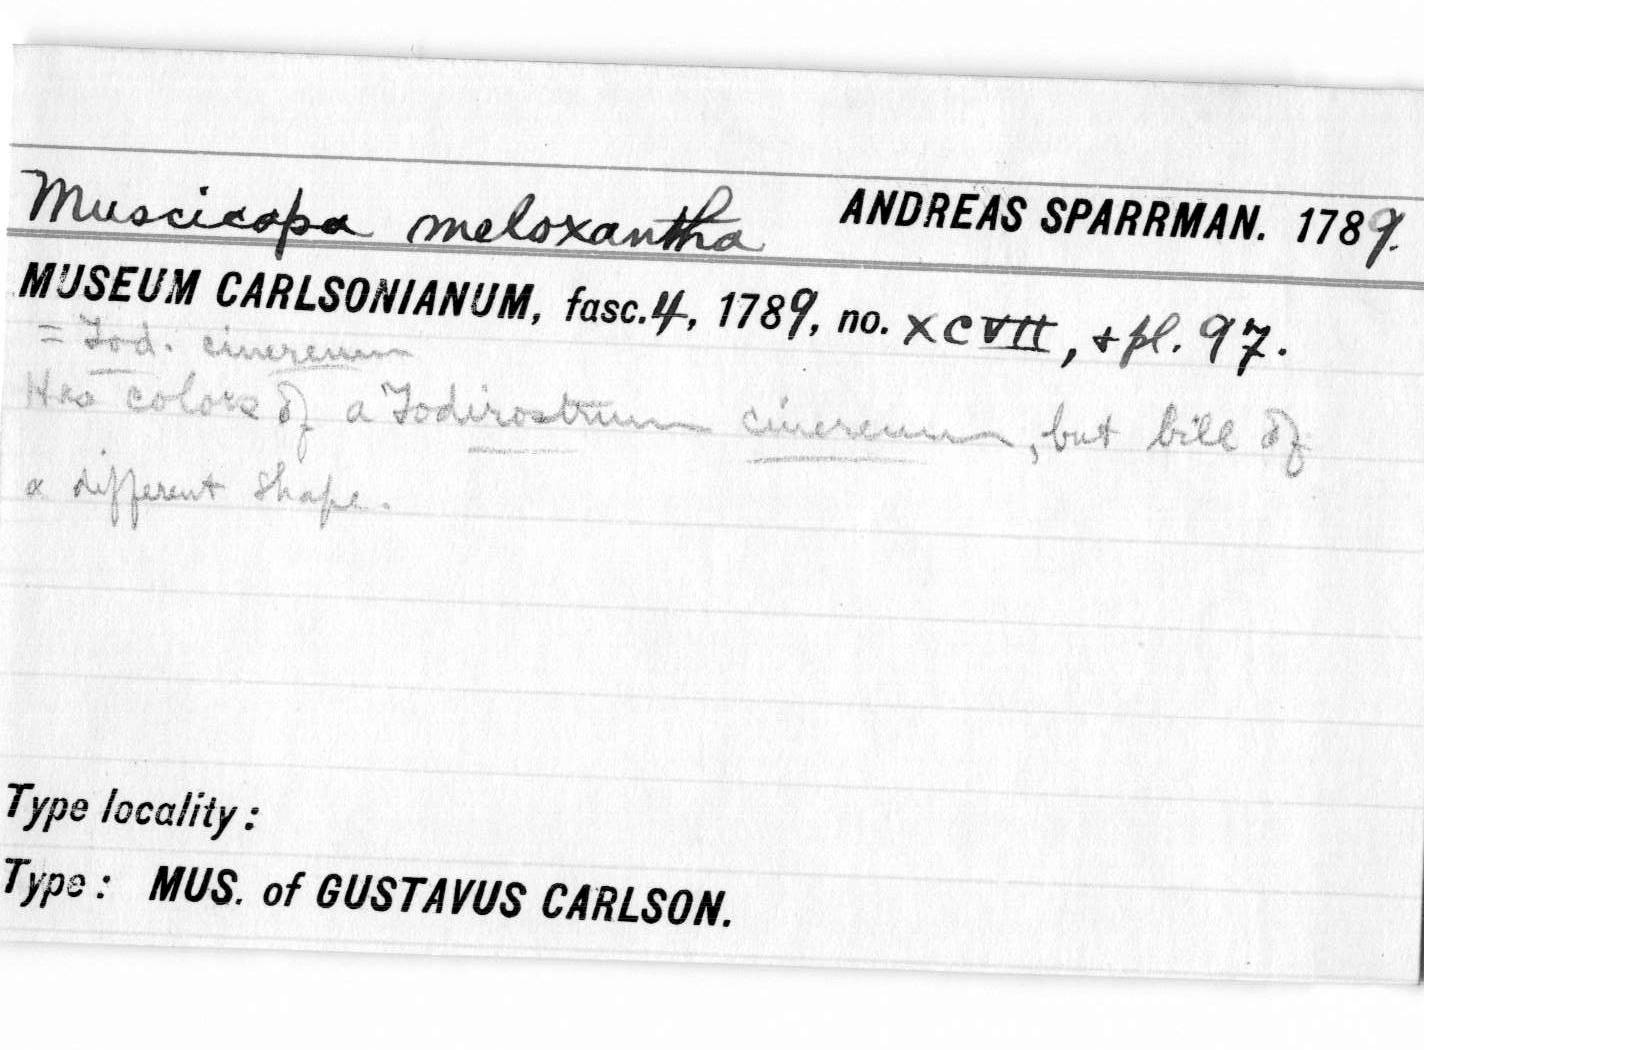 Muscicapa meloxantha ANDREAS SPARRMAN. 1789.
MUSEUM CARLSONIANUM, fasc. 4, 1789, no. XCVII, + pl. 97.
= Tod. cinereum
Has colors of a Todirostrum cinereum, but bill of
a different shape.
Type locality:
Type: MUS. of GUSTAVUS CARLSON.